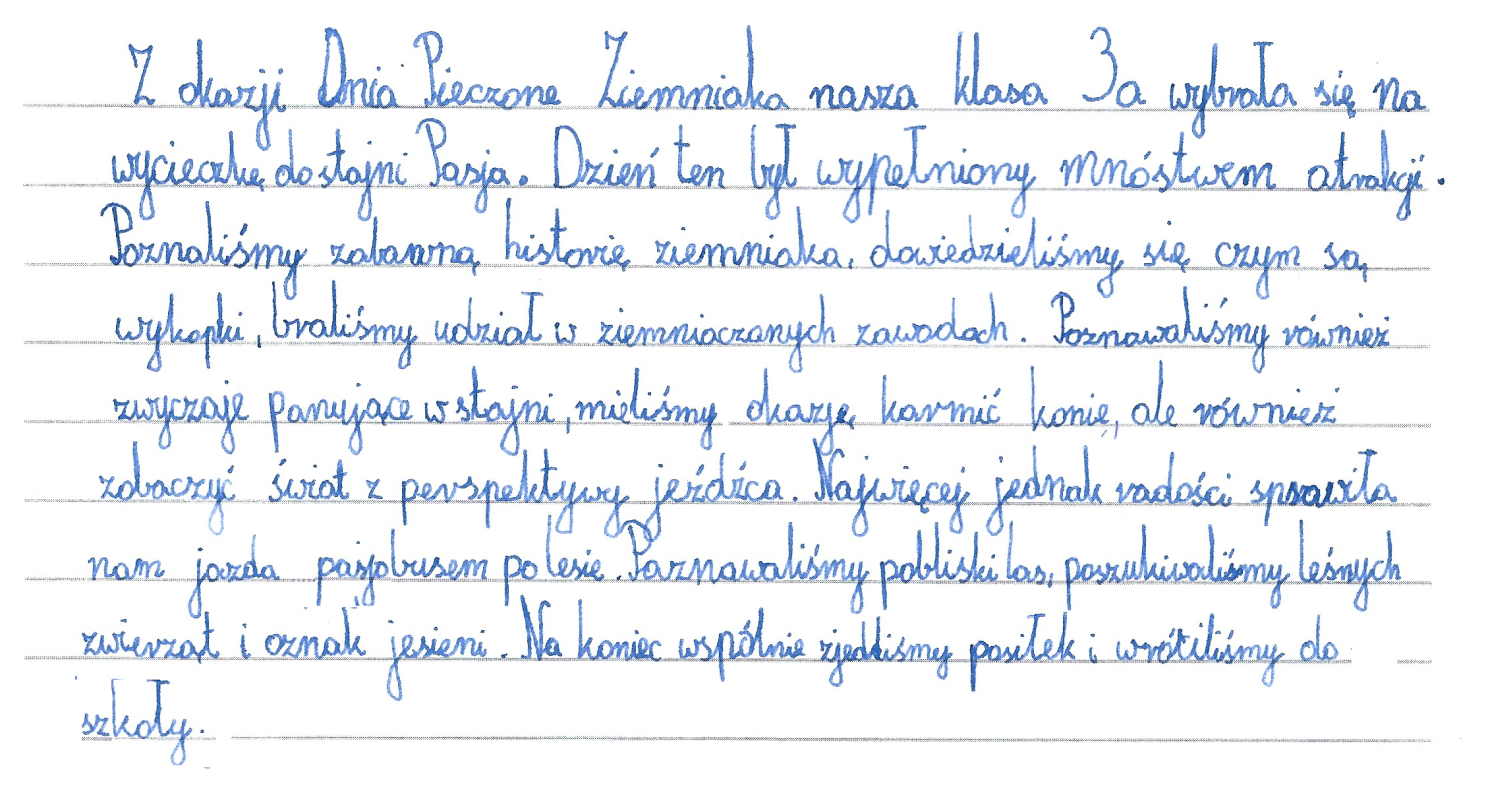 Z okazji Dnia Pieczone Ziemniaka nasza klasa 3a wybrała się na
wycieczkę do stajni Pasja. Dzień ten był wypełniony mnóstwem atrakcji.
Poznaliśmy zabawną historię ziemniaka, dowiedzieliśmy się czym są
wykopki, braliśmy udział w ziemniaczanych zawodach. Poznawaliśmy również
zwyczaje panujące w stajni, mieliśmy okazję karmić konie, ale również
zobaczyć świat z perspektywy jeźdźca. Najwięcej jednak radości sprawiła
nam jazda pasjobusem po lesie. Poznawaliśmy pobliski las, poszukiwaliśmy leśnych
zwierząt i oznak jesieni. Na koniec wspólnie zjedliśmy posiłek i wróciliśmy do
szkoły.